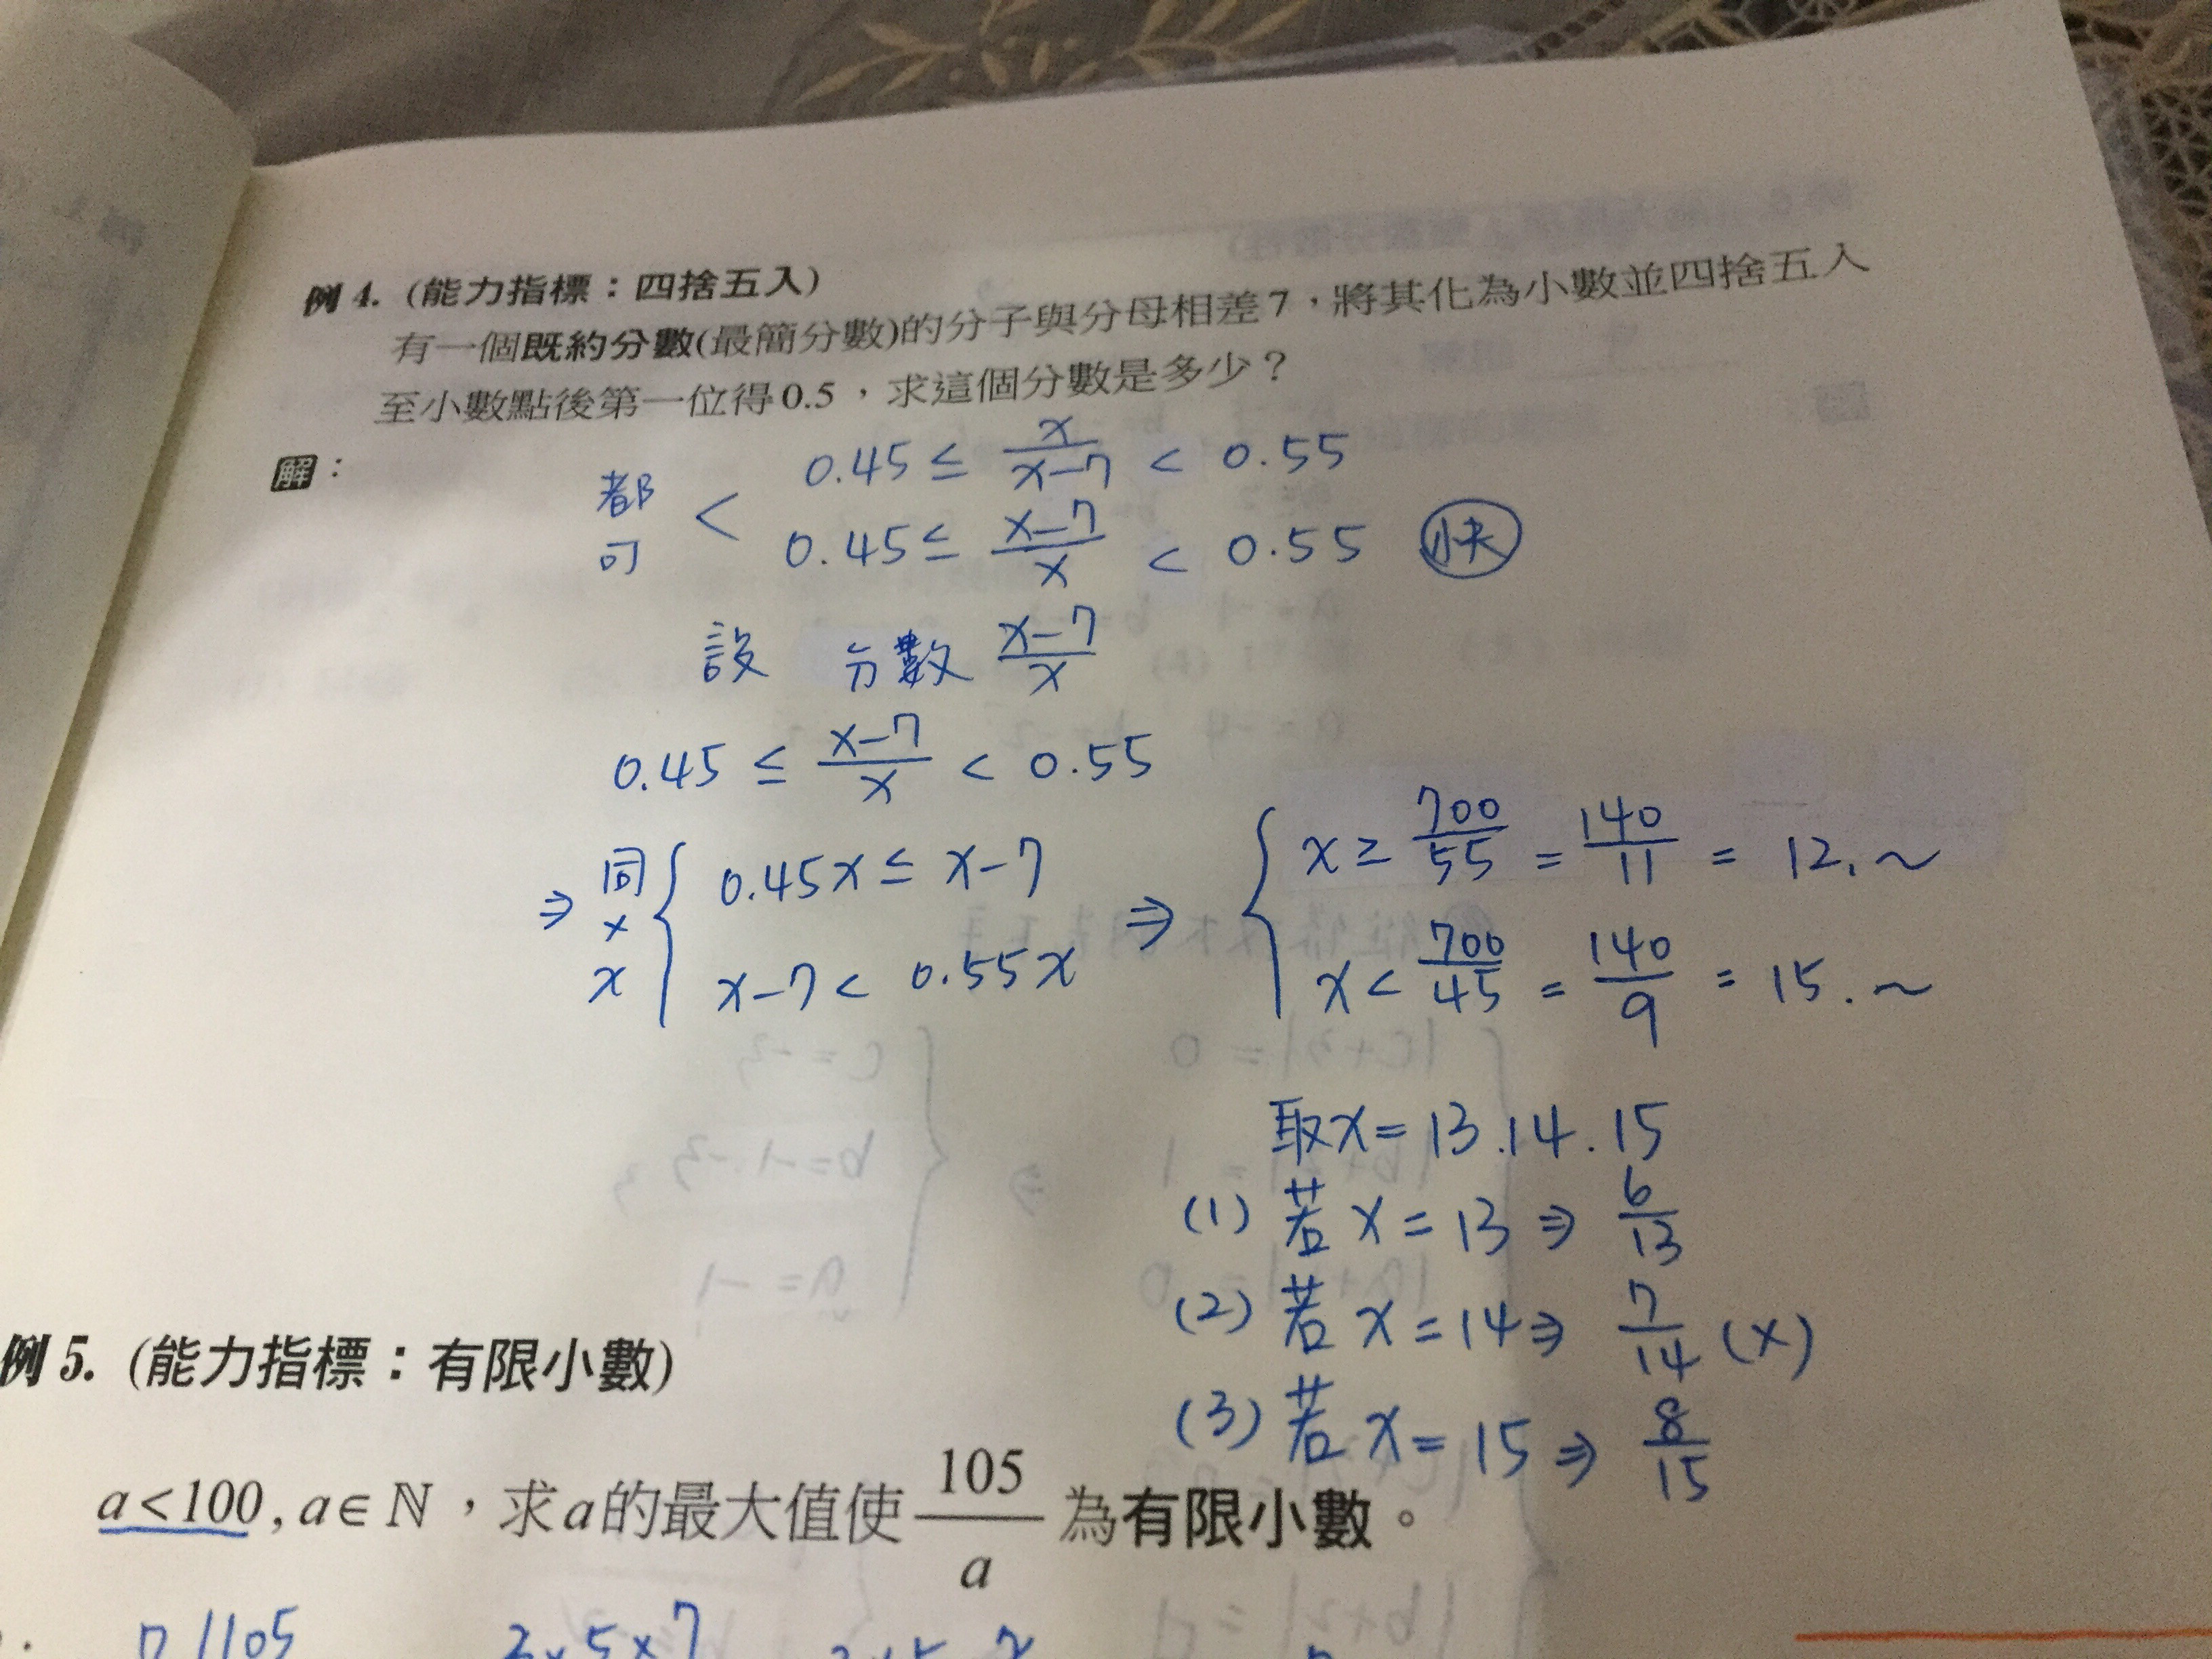 例 4. (能力指標：四捨五入)
有一個既約分數(最簡分數)的分子與分母相差7，將其化為小數並四捨五入
至小數點後第一位得0.5，求這個分數是多少？
解：
都可 < 0.45 ≤ x/(x-7) < 0.55
0.45 ≤ (x-7)/x < 0.55 快
設 分數 (x-7)/x
0.45 ≤ (x-7)/x < 0.55
⇒ 同×x { 0.45x ≤ x-7 ⇒ { x ≥ 700/55 = 140/11 = 12.~
x-7 < 0.55x x < 700/45 = 140/9 = 15.~
取x = 13.14.15
(1) 若 x = 13 ⇒ 6/13
(2) 若 x = 14 ⇒ 7/14 (×)
(3) 若 x = 15 ⇒ 8/15
例 5. (能力指標：有限小數)
a<100, a∈ℕ，求a的最大值使 105/a 為有限小數。